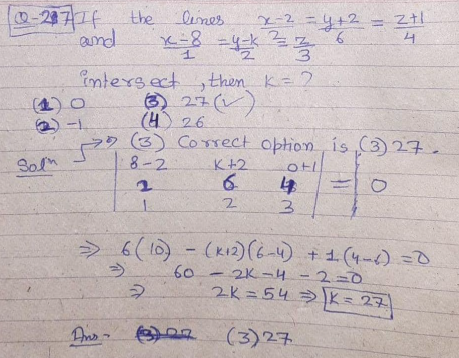 Q-217 If the lines x-2/2 = y+2/6 = z+1/4
and x-8/1 = y-k/2 = z/3
intersect, then k = ?
(1) 0 (3) 27 (✓)
(2) -1 (4) 26
Sol^n → (3) Correct option is (3) 27.
| 8-2 k+2 0+1 |
| 2 6 4 | = 0
| 1 2 3 |
⇒ 6(10) - (k+2)(6-4) + 1(4-6) = 0
⇒ 60 - 2k - 4 - 2 = 0
⇒ 2k = 54 ⇒ k = 27
Ans - (3) 27 (3) 27